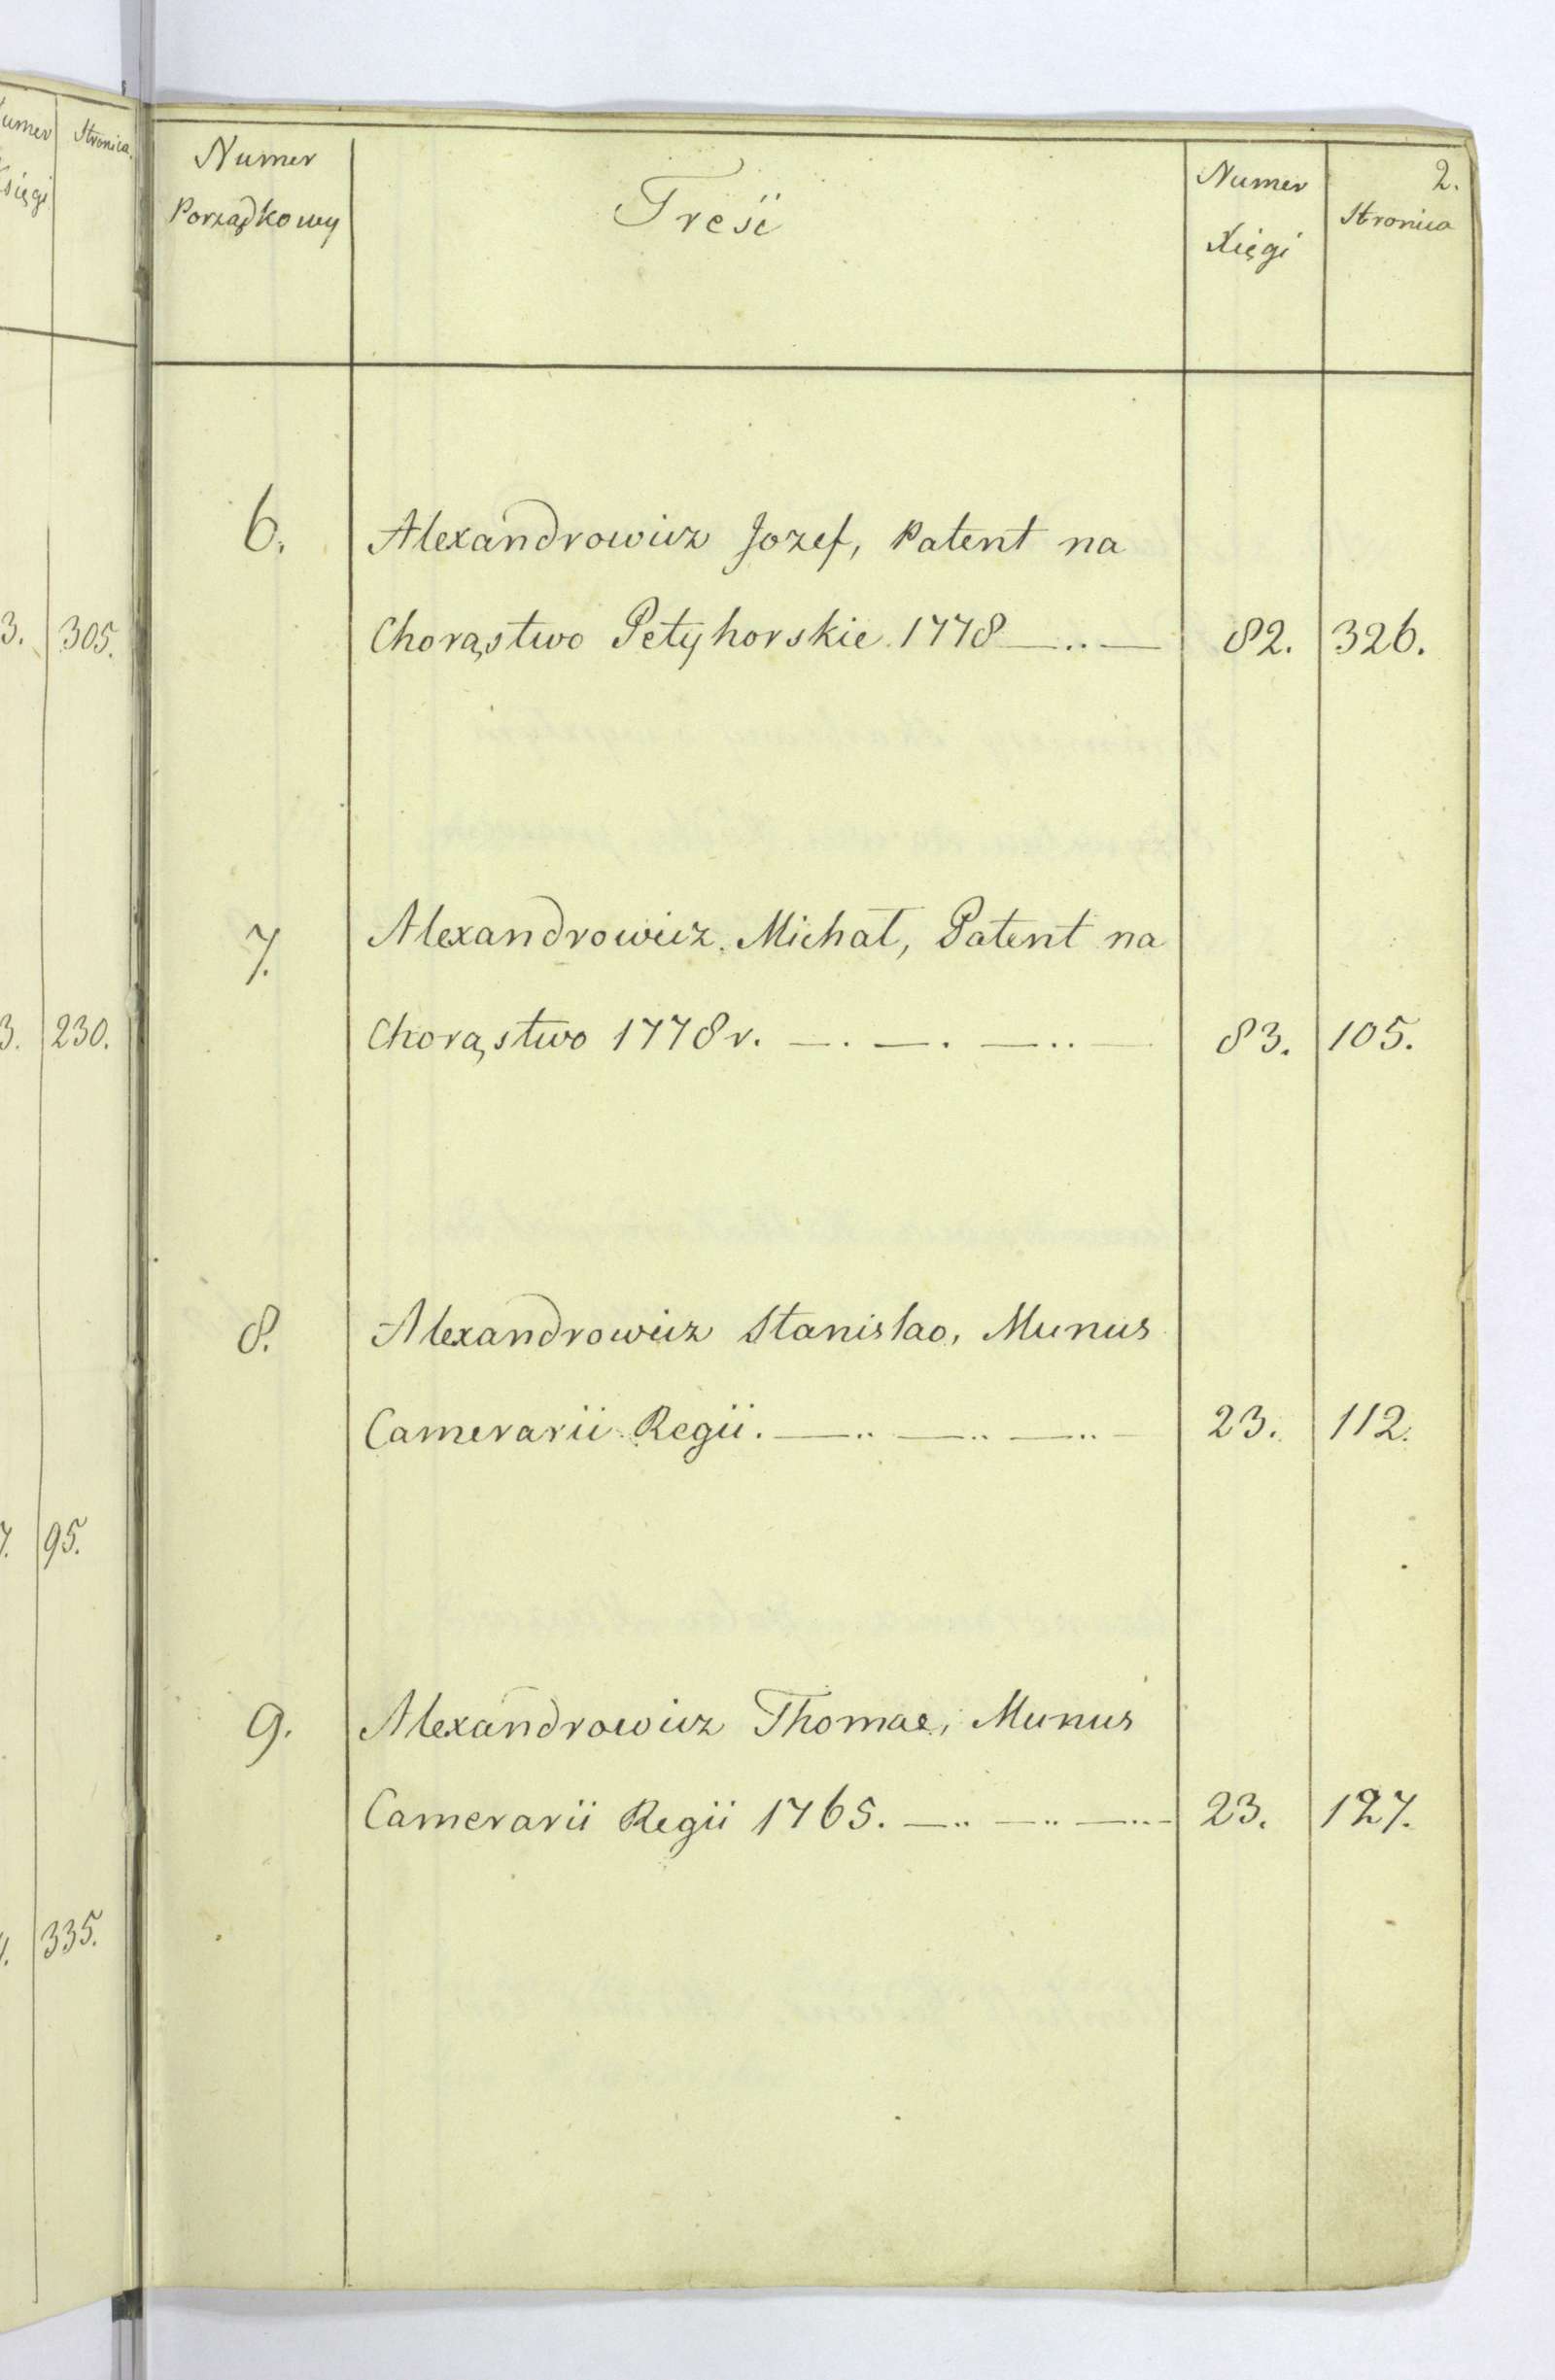 Numer
Księgi
Stronica.
3. 305.
3. 230.
7. 95.
335.
2.
Numer
Porządkowy
Treść
Numer
Xięgi
Stronica
6. Alexandrowicz Jozef, Patent na
Chorąstwo Petyhorskie 1778 82. 326.
7. Alexandrowicz Michał, Patent na
Chorąstwo 1778 r. 83. 105.
8. Alexandrowicz Stanislao, Munus
Camerarii Regii. 23. 112.
9. Alexandrowicz Thomae, Munus
Camerarii Regii 1765. 23. 127.